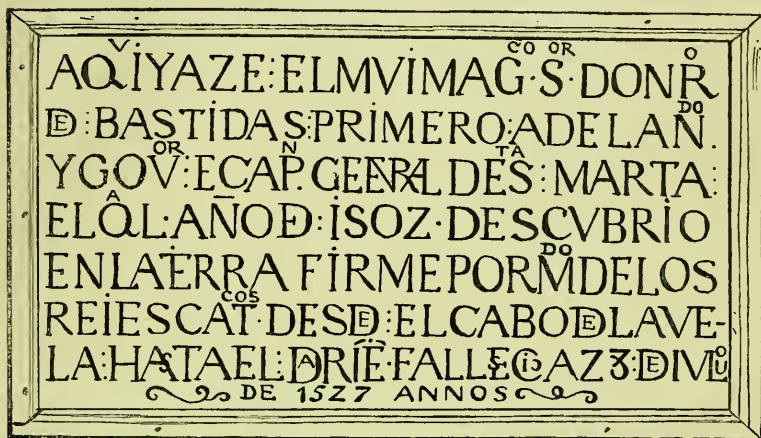 AQVIYAZE:ELMVIMAGCO·SOR·DONRO
DE:BASTIDAS:PRIMERO:ADELANDO.
YGOVOR:ECAPN.GENERAL DESTA:MARTA:
ELQAL·AÑODE:ISOZ·DESCVBRIO
ENLATERRA FIRMEPORMDODELOS
REIESCATCOS·DESDE:ELCABODELAVE-
LA:HASTAEL:DARIE·FALLECIOAZ8:DEIVLIO
DE 1527 ANNOS